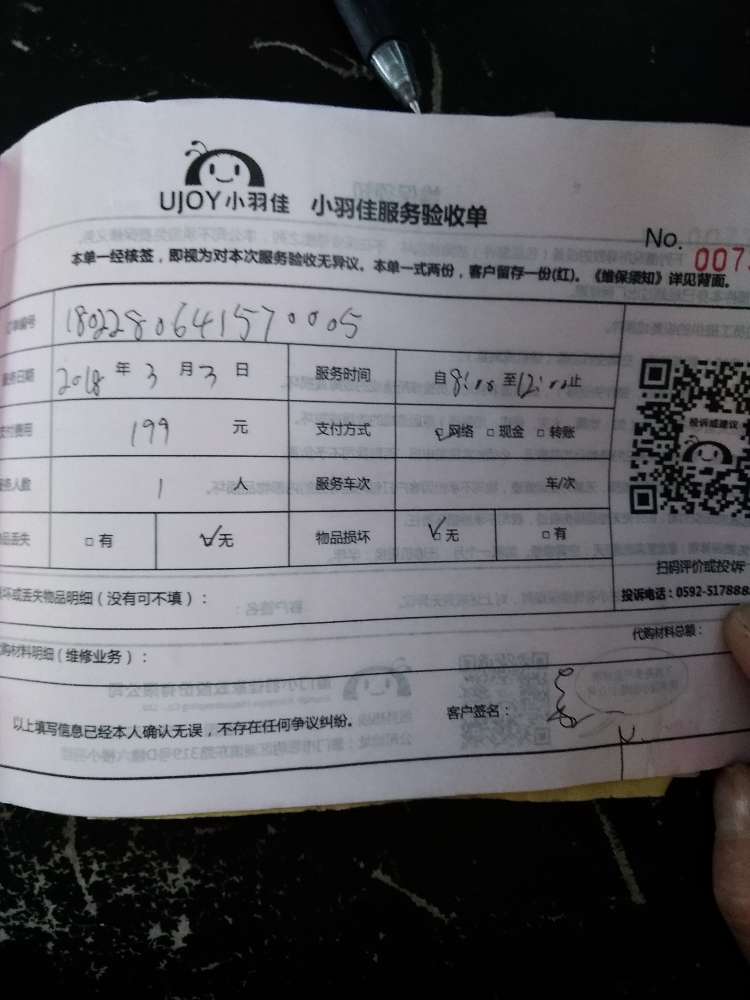 UJOY小羽佳 小羽佳服务验收单
No. 007
本单一经核签，即视为对本次服务验收无异议。本单一式两份，客户留存一份(红)。《维保须知》详见背面。
单编号 1802280641570005
务日期 2018 年 3 月 3 日 服务时间 自8:00至12:00止
支付费用 199 元 支付方式 网络 现金 转账
务人数 1 人 服务车次 车/次
品丢失 有 无 物品损坏 无 有
投诉或建议
扫码评价或投诉
投诉电话：0592-517888
坏或丢失物品明细（没有可不填）：
代购材料总额：
购材料明细（维修业务）：
以上填写信息已经本人确认无误，不存在任何争议纠纷。 客户签名：